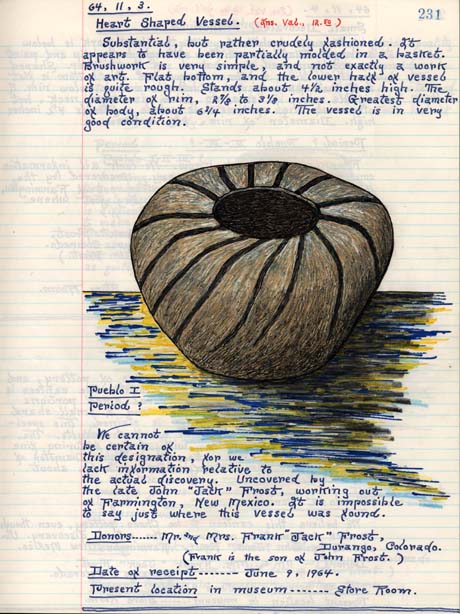 64, 11, 3.
231
Heart Shaped Vessel. (Ins. Val., 12.50)
Substantial, but rather crudely fashioned. It
appears to have been partially molded in a basket.
Brushwork is very simple, and not exactly a work
of art. Flat bottom, and the lower half of vessel
is quite rough. Stands about 4 1/2 inches high. The
diameter of rim, 2 7/8 to 3 1/8 inches. Greatest diameter
of body, about 6 1/4 inches. The vessel is in very
good condition.
Pueblo I
Period ?
We cannot
be certain of
this designation, for we
lack information relative to
the actual discovery. Uncovered by
the late John "Jack" Frost, working out
of Farmington, New Mexico. It is impossible
to say just where this vessel was found.
Donors------ Mr. and Mrs. Frank "Jack" Frost,
Durango, Colorado.
(Frank is the son of John Frost.)
Date of receipt------- June 9, 1964.
Present location in museum------- Store Room.